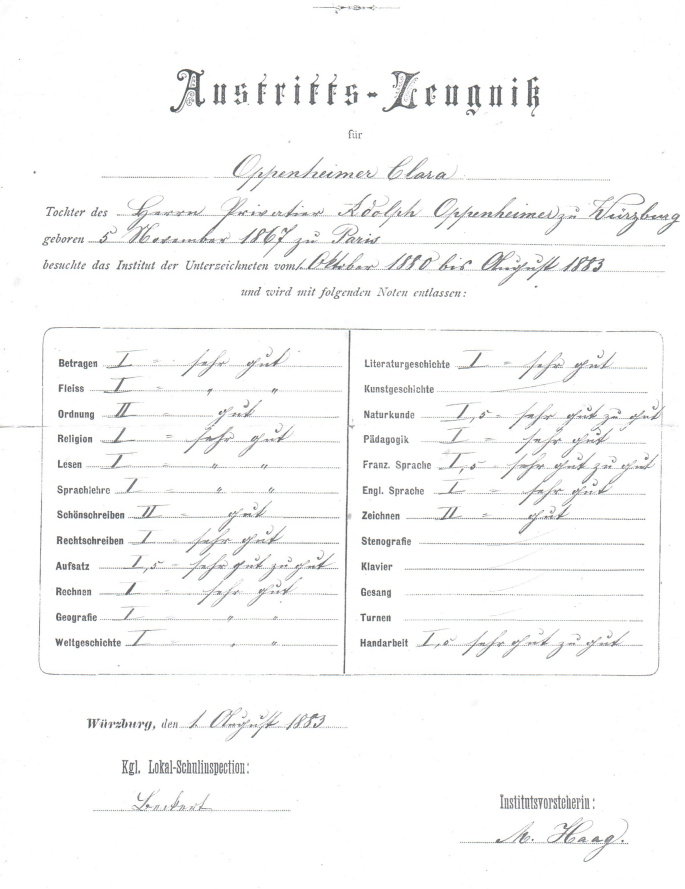 Austritts-Zeugniß
für
Oppenheimer Clara
Tochter des Herrn Privatier Adolph Oppenheimer zu Würzburg
geboren 5 November 1867 zu Paris
besuchte das Institut der Unterzeichneten vom 1. Oktober 1880 bis August 1883
und wird mit folgenden Noten entlassen:
Betragen I = sehr gut
Fleiss I = " "
Ordnung II = gut
Religion I = sehr gut
Lesen I = " "
Sprachlehre I = " "
Schönschreiben II = gut
Rechtschreiben I = sehr gut
Aufsatz I,5 = sehr gut zu gut
Rechnen I = sehr gut
Geografie I = " "
Weltgeschichte I = " "
Literaturgeschichte I = sehr gut
Kunstgeschichte
Naturkunde I,5 = sehr gut zu gut
Pädagogik I = sehr gut
Franz. Sprache I,5 = sehr gut zu gut
Engl. Sprache I = sehr gut
Zeichnen II = gut
Stenografie
Klavier
Gesang
Turnen
Handarbeit I,5 sehr gut zu gut
Würzburg, den 1. August 1883
Kgl. Lokal-Schulinspection:
Institutsvorsteherin:
M. Haag.